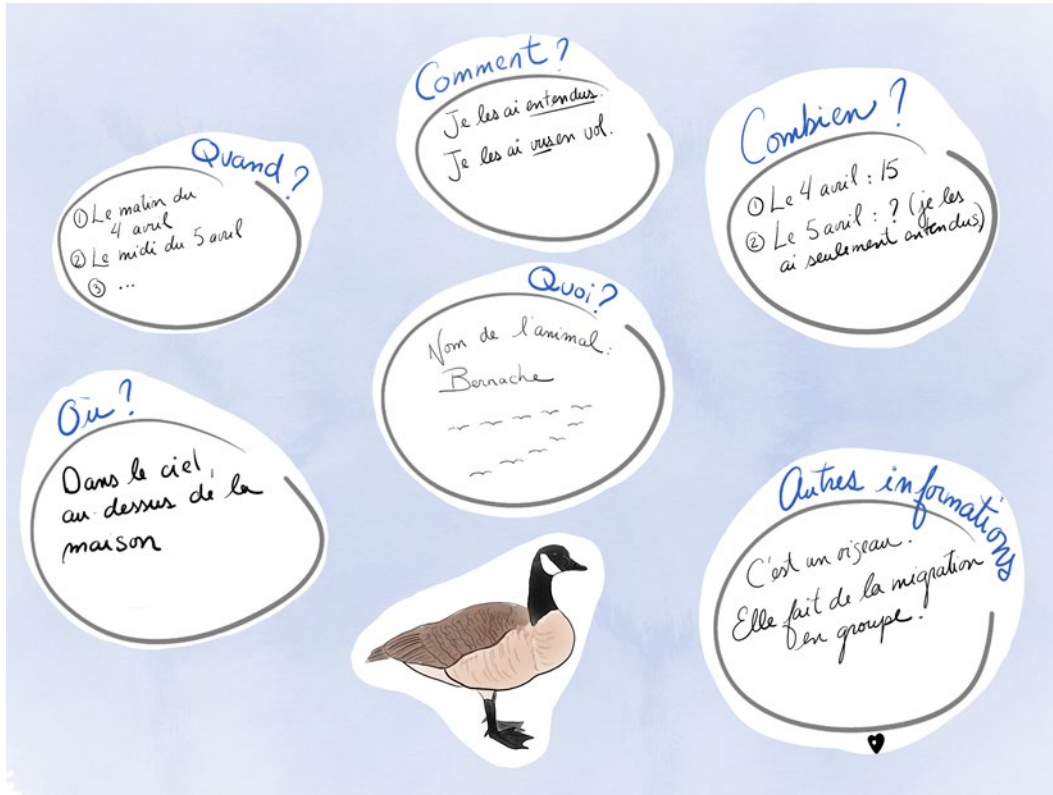 Comment ?
Je les ai entendus.
Je les ai vus en vol.
Quand ?
① Le matin du
4 avril
② Le midi du 5 avril
③ ...
Combien ?
① Le 4 avril : 15
② Le 5 avril : ? (je les
ai seulement entendus)
Quoi ?
Nom de l'animal :
Bernache
Où ?
Dans le ciel,
au-dessus de la
maison
Autres informations
C'est un oiseau.
Elle fait de la migration
en groupe.